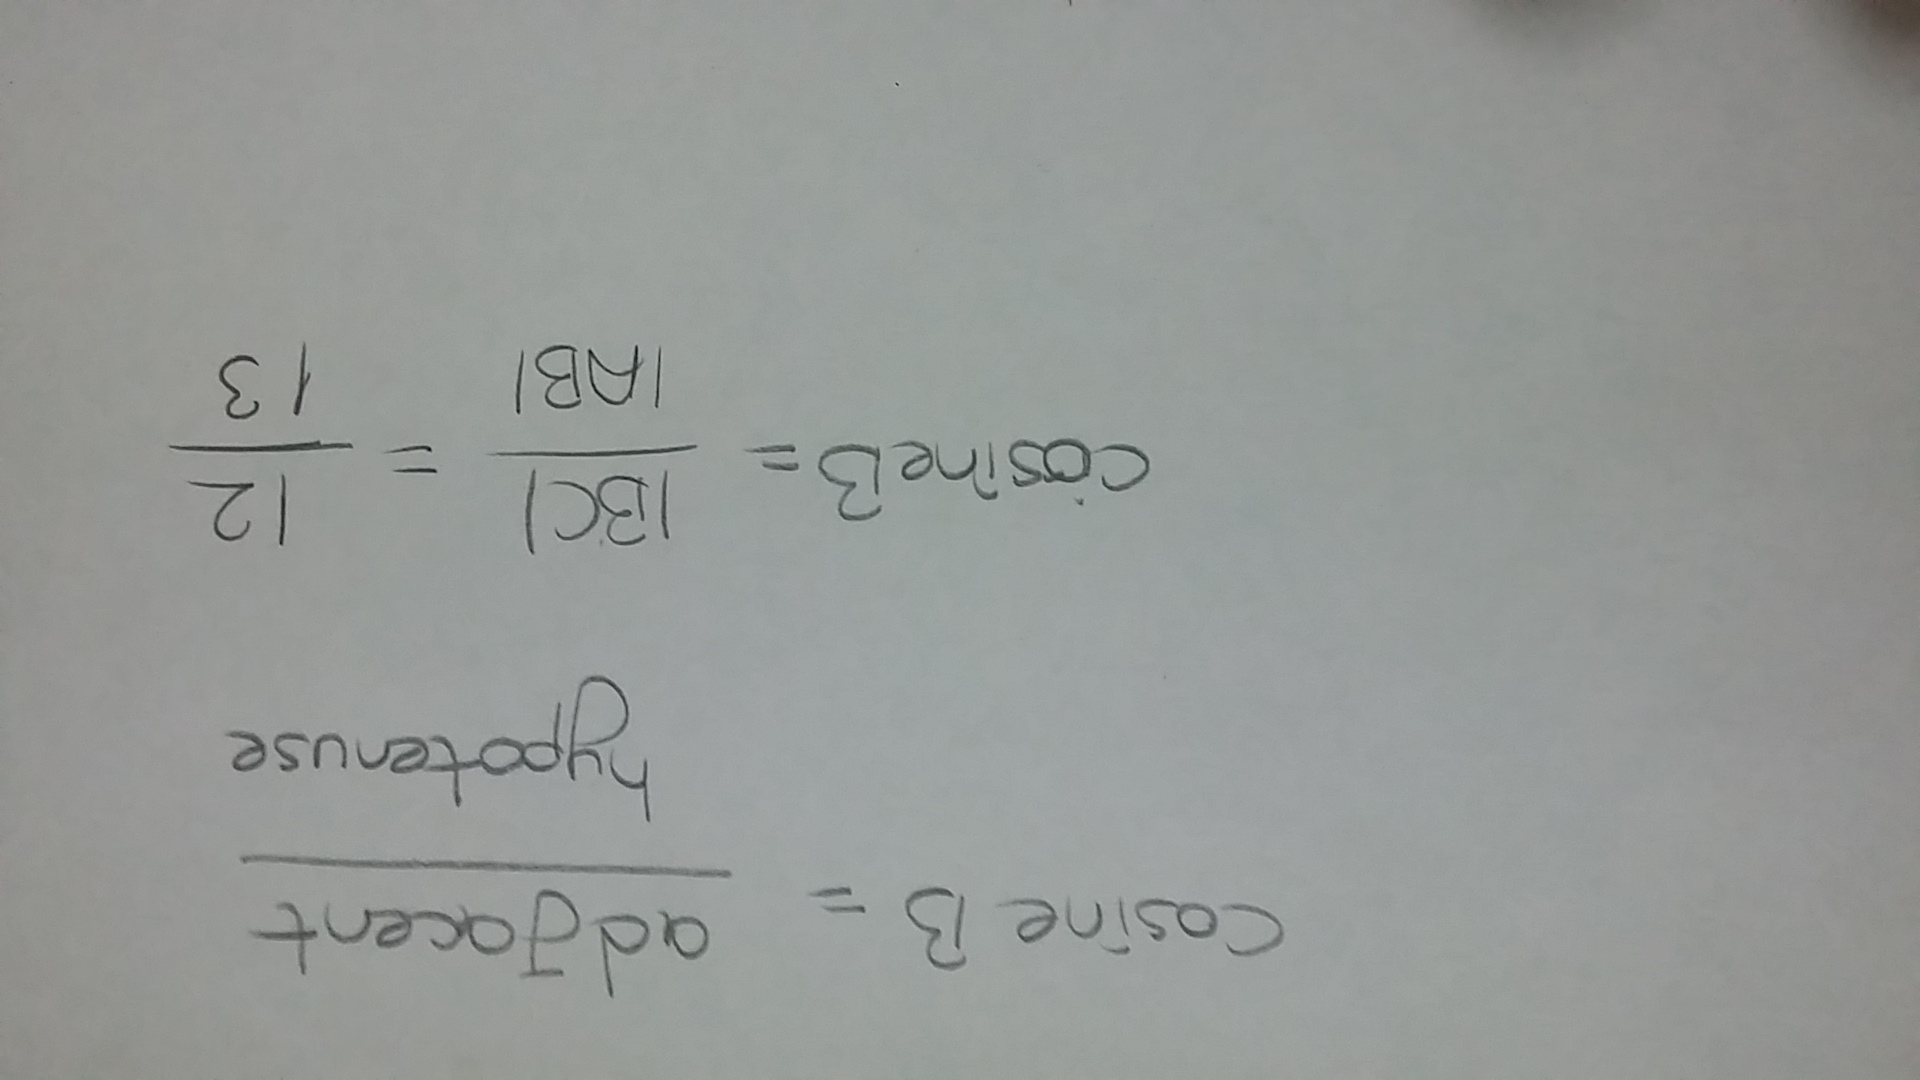 cosine B = adjacent
hypotenuse
cosine B = |BC| = 12
|AB| 13